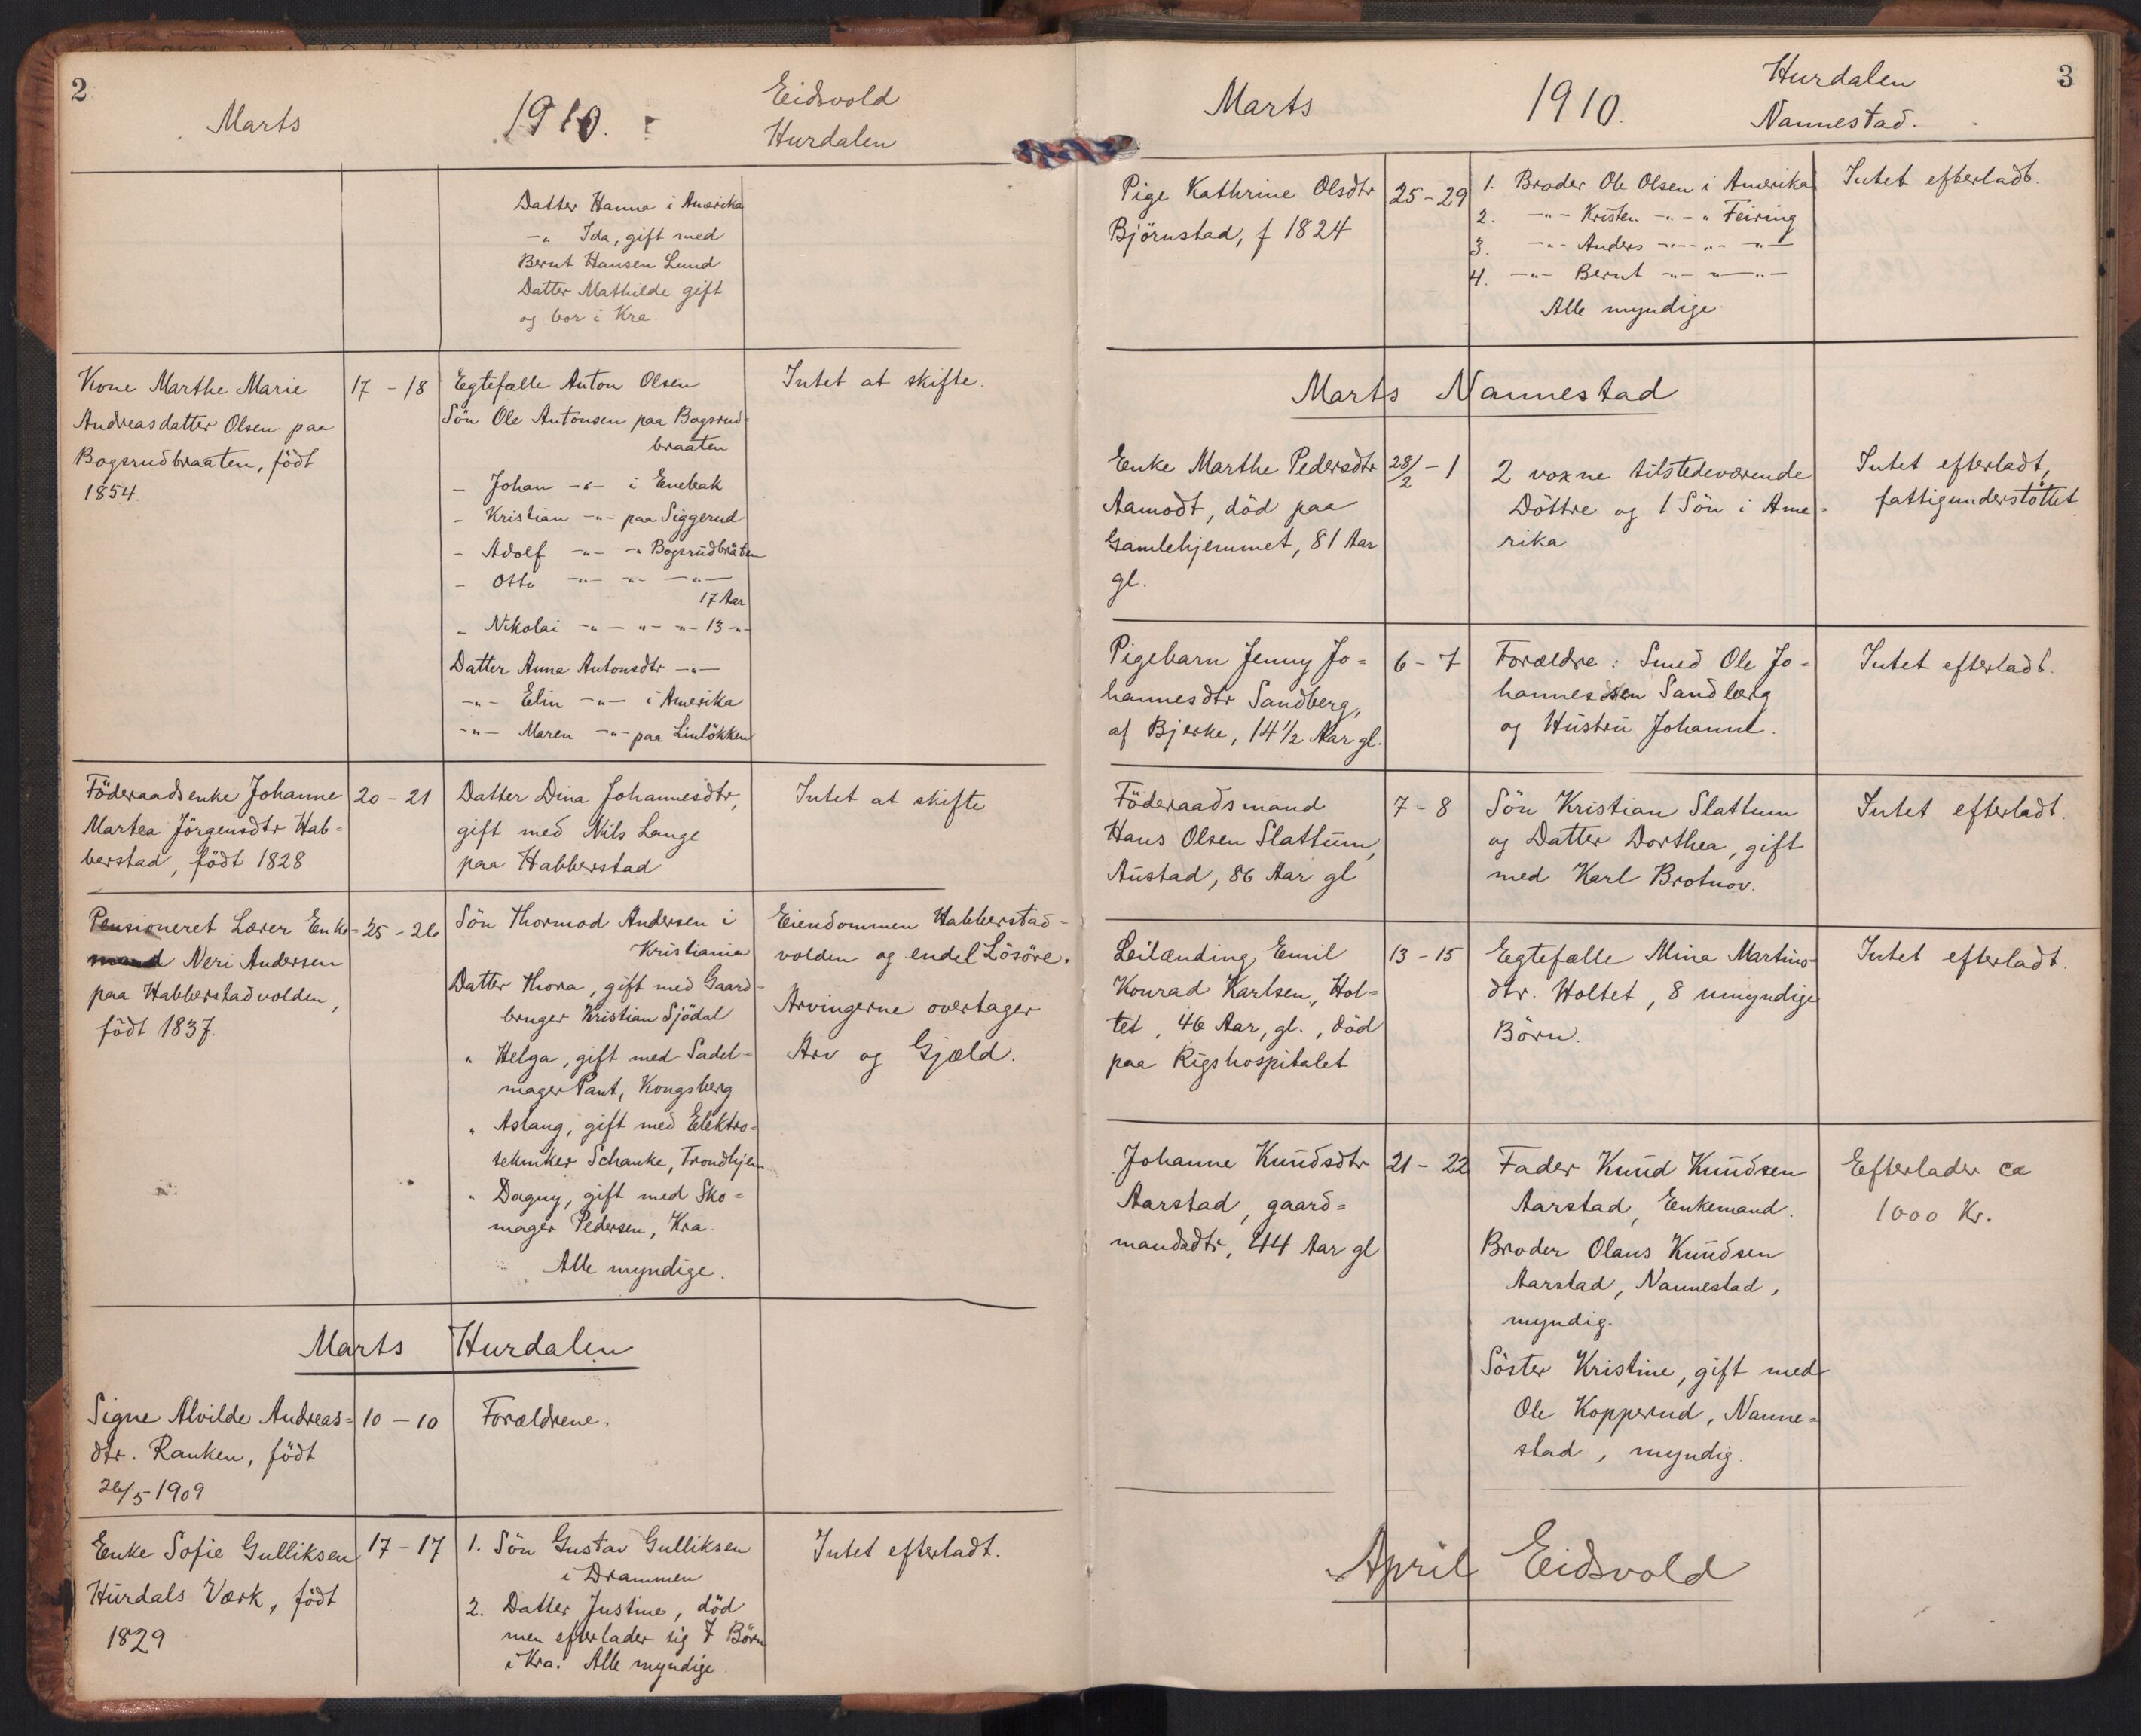 2
Marts 1910. Eidsvold
Hurdalen
Datter Hanna i Amerika
-"- Ida, gift med
Bernt Hansen Lund
Datter Mathilde gift
og bor i Kra.
Kone Marthe Marie
Andreasdatter Olsen paa
Bogsrudbraaten, födt
1854.
17 - 18
Egtefælle Anton Olsen
Sön Ole Antonsen paa Bogsrud-
braaten
- Johan -"- i Enebak
- Kristian -"- paa Siggerud
- Adolf -"- -" Bogsrudbråten
- Otto -"- -"- -"-
17 Aar
- Nikolai -"- -"- -"- 13 -"-
Datter Anna Antonsdtr -"-
-"- Elin -"- i Amerika
-"- Maren -"- paa Linlökken
Intet at skifte.
Föderaadsenke Johanne
Martea Jörgensdtr Hab=
berstad, födt 1828
20 - 21
Datter Dina Johannesdtr,
gift med Nils Lange
paa Habberstad
Intet at skifte
Pensioneret Lærer Enke-
mand Neri Andersen
paa Habberstadvolden,
födt 1837.
25 - 26
Sön Thormod Andersen i
Kristiania
Datter Thora, gift med Gaard=
bruger Kristian Sjödal
" Helga, gift med Sadel=
mager Pant, Kongsberg
" Aslaug, gift med Elektro=
tekniker Schanke, Trondhjem
" Dagny, gift med Sko=
mager Pedersen, Kra.
Alle myndige.
Eiendommen Habberstad-
volden og endel Lösöre.
Arvingerne overtager
Arv og Gjæld.
Marts Hurdalen
Signe Alvilde Andreas=
dtr. Ranken, födt
26/5 1909
10 - 10
Forældrene.
Enke Sofie Gulliksen
Hurdals Værk, födt
1829
17 - 17
1. Sön Gustav Gulliksen
i Drammen
2. Datter Justine, död
men efterlader sig 7 Börn
i Kra. Alle myndige
Intet efterladt.
3
Marts 1910. Hurdalen
Nannestad.
Pige Kathrine Olsdtr
Björnstad, f 1824
25 - 29
1. Broder Ole Olsen i Amerika
2. -"- Kristen -"- " Feiring
3. -"- Anders -"- -"- -"-
4. -"- Bernt -"- -"- -"-
Alle myndige.
Intet efterladt.
Marts Nannestad
Enke Marthe Pedersdtr
Aamodt, död paa
Gamlehjemmet, 81 Aar
gl.
28/2 - 1
2 voxne tilstedeværende
Döttre og 1 Sön i Ame=
rika
Intet efterladt,
fattigunderstöttet
Pigebarn Jenny Jo=
hannesdtr Sandberg,
af Bjerke, 14 1/2 Aar gl.
6 - 7
Forældre: Smed Ole Jo=
hannessen Sandberg
og Hustru Johanne.
Intet efterladt.
Föderaadsmand
Hans Olsen Slattum,
Austad, 86 Aar gl
7 - 8
Sön Kristian Slattum
og Datter Dorthea, gift
med Karl Brotnov.
Intet efterladt.
Leilænding Emil
Konrad Karlsen, Hol=
tet, 46 Aar, gl., död
paa Rigshospitalet
13 - 15
Egtefælle Mina Martins-
dtr. Holtet, 8 umyndige
Börn.
Intet efterladt.
Johanne Knudsdtr
Aarstad, gaard=
mandsdtr, 44 Aar gl
21 - 22
Fader Knud Knudsen
Aarstad, Enkemand.
Broder Olaus Knudsen
Aarstad, Nannestad,
myndig.
Söster Kristine, gift med
Ole Kopperud, Nanne=
stad, myndig.
Efterlader ca
1000 Kr.
April Eidsvold